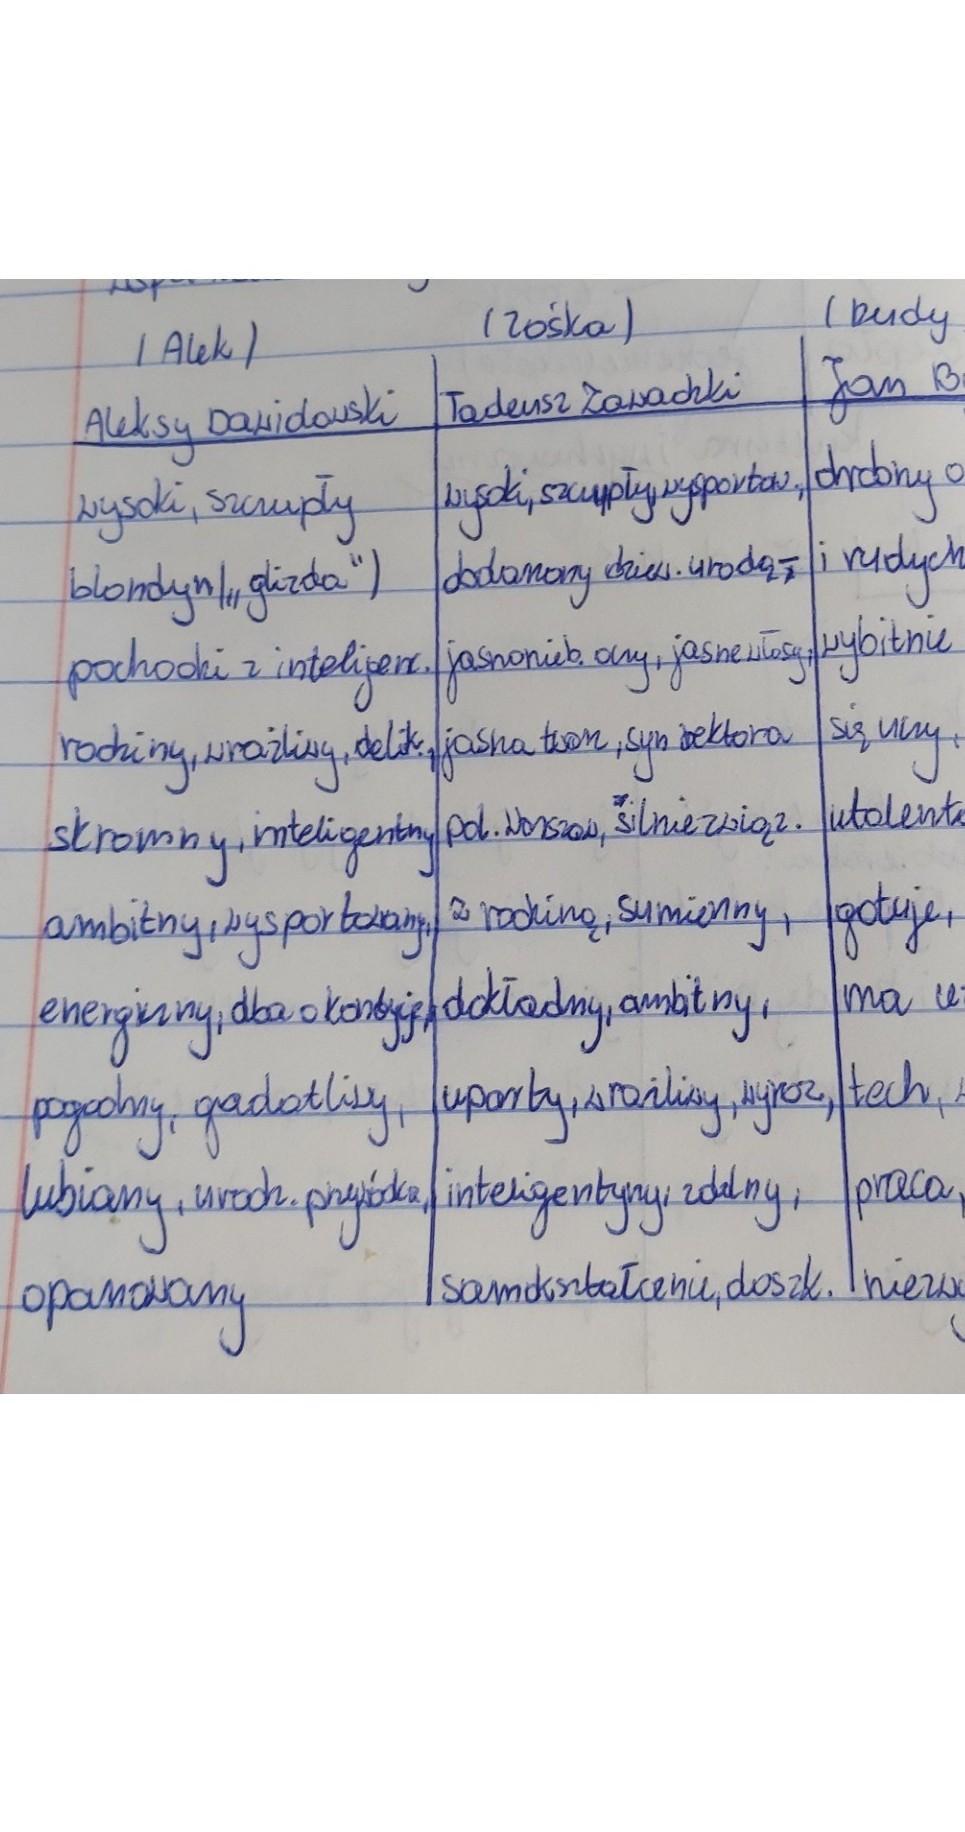 (Alek) (Zośka) (Rudy
Aleksy Dawidowski Tadeusz Zawadzki Jan B
wysoki, szczupły wysoki, szczupły, wysportow., drobny o
blondyn („glizda") obdarzony dziew. urodą, i rudych
pochodzi z inteligenc. jasnonieb. oczy, jasne włosy, wybitnie
rodziny, wrażliwy, delik., jasna twarz, syn rektora się uczy,
skromny, inteligentny pol. Warszaw, silnie związ. utalento
ambitny, wysportowany, z rodziną, sumienny, gotuje,
energiczny, dba o kondycję, dokładny, ambitny, ma
pogodny, gadatliwy, uparty, wrażliwy, wyroz, tech,
lubiany, urodz. przywódca, inteligentyny, zdolny, praca,
opanowany samokształcenie, doszk. niezwy